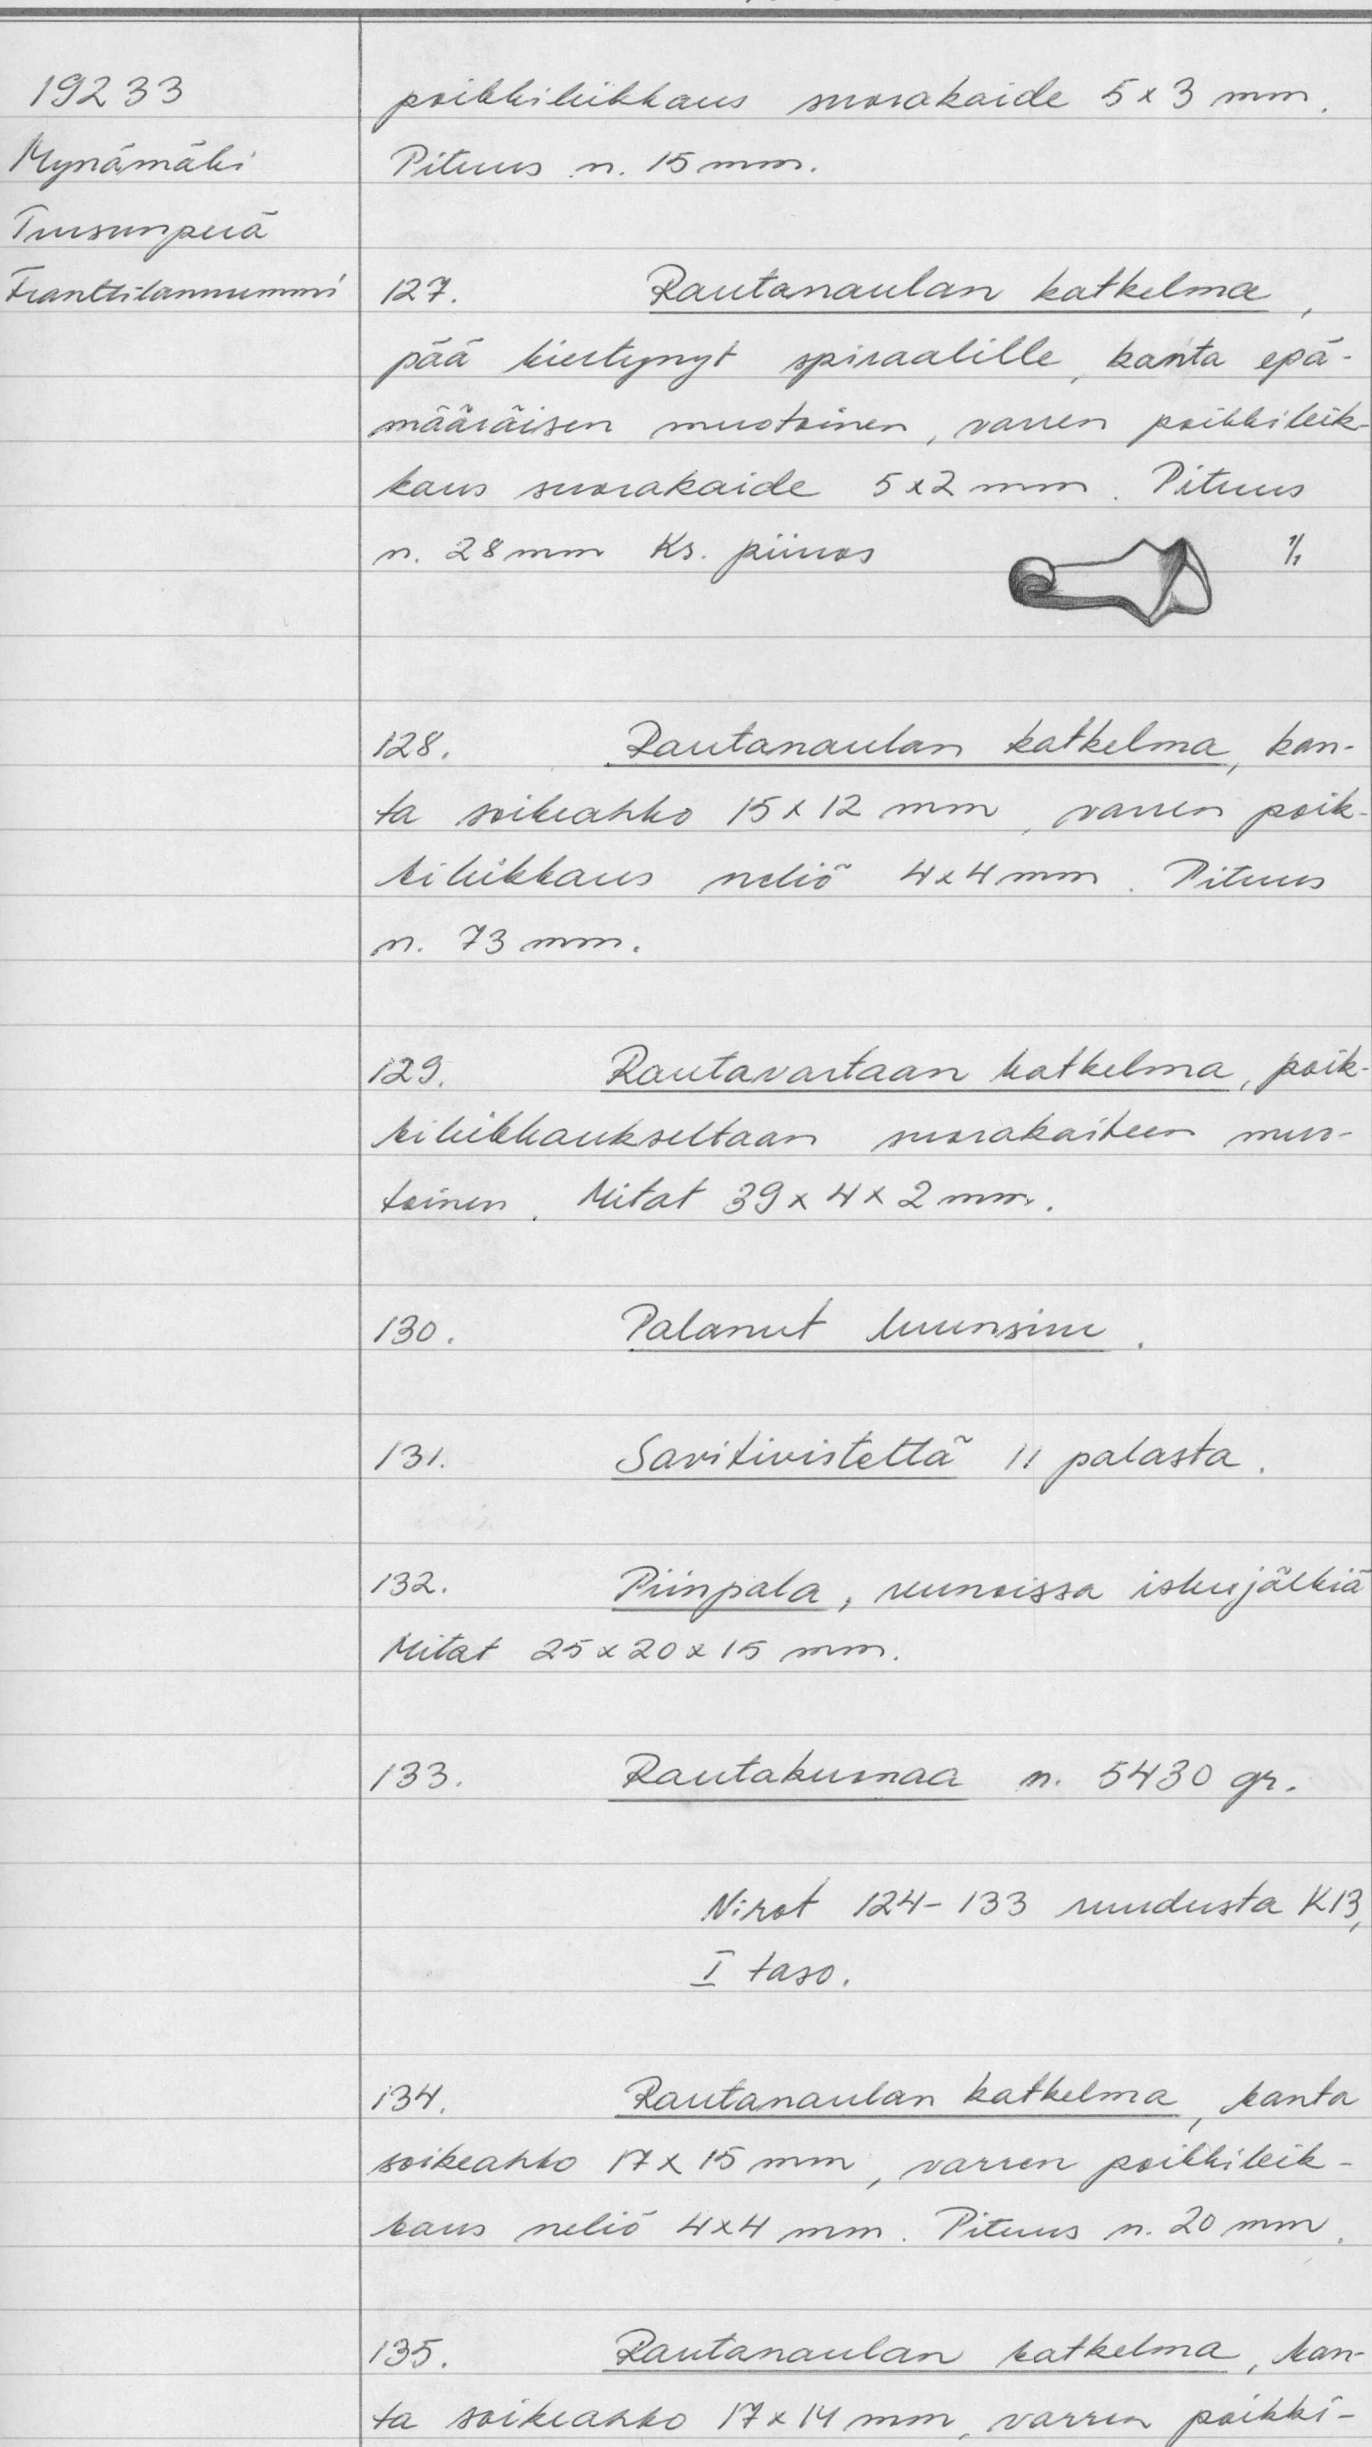 19233
Mynämäki
Tursunperä
Franttilannummi
poikkileikkaus suorakaide 5x3 mm.
Pituus n. 15 mm.
127. Rautanaulan katkelma,
pää kiertynyt spiraalille, kanta epä-
määräisen muotoinen, varren poikkileik-
kaus suorakaide 5x2 mm. Pituus
n. 28 mm Ks. piirros 1/1
128. Rautanaulan katkelma, kan-
ta soikeahko 15x12 mm, varren poik-
kileikkaus neliö 4x4 mm. Pituus
n. 73 mm.
129. Rautavartaan katkelma, poik-
kileikkaukseltaan suorakaiteen muo-
toinen. Mitat 39x4x2 mm.
130. Palanut luunsiru.
131. Savitiivistettä 11 palasta.
132. Piinpala, reunoissa iskujälkiä
Mitat 25x20x15 mm.
133. Rautakuonaa n. 5430 gr.
N:rot 124-133 ruudusta K13,
I taso.
134. Rautanaulan katkelma, kanta
soikeahko 17x15 mm, varren poikkileik-
kaus neliö 4x4 mm. Pituus n. 20 mm.
135. Rautanaulan katkelma, kan-
ta soikeahko 17x14 mm, varren poikki-